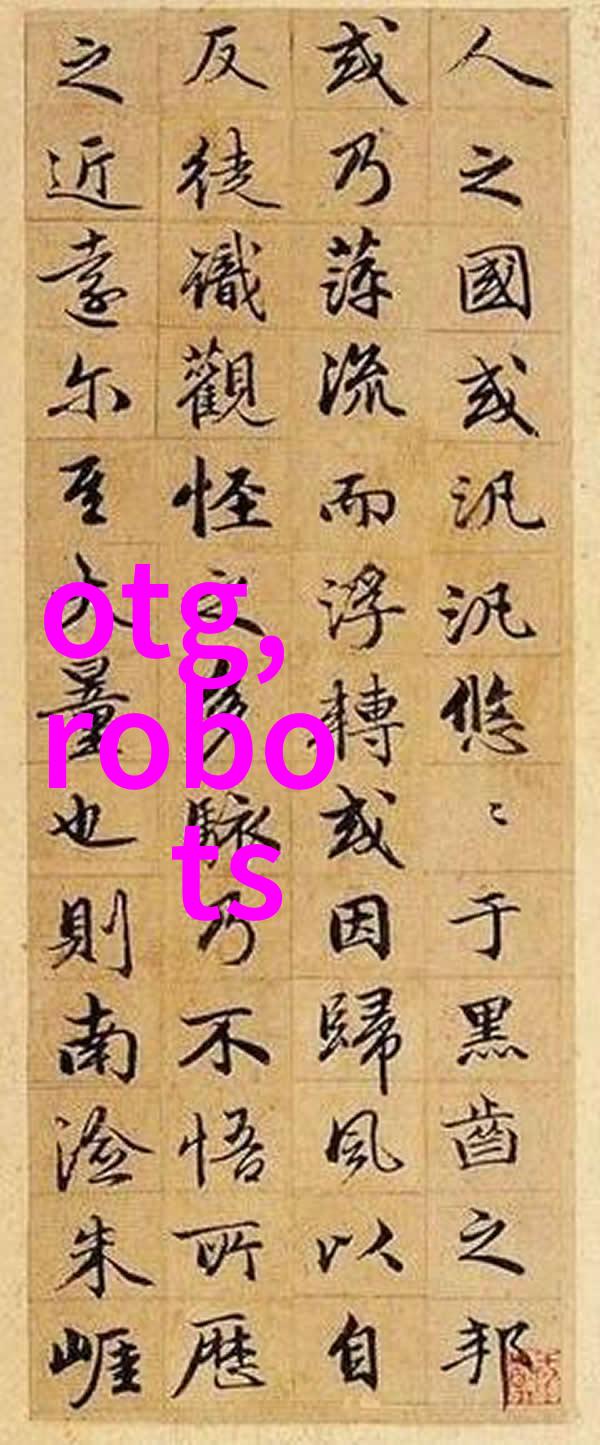 人之國或汎汎悠〻于黑齒之邦
或乃萍流而浮轉或因歸風以自
反徒識觀怪之多駭乃不悟所歷
之近遠尔至大量也則南淦朱崖
otg,
robo
ts,